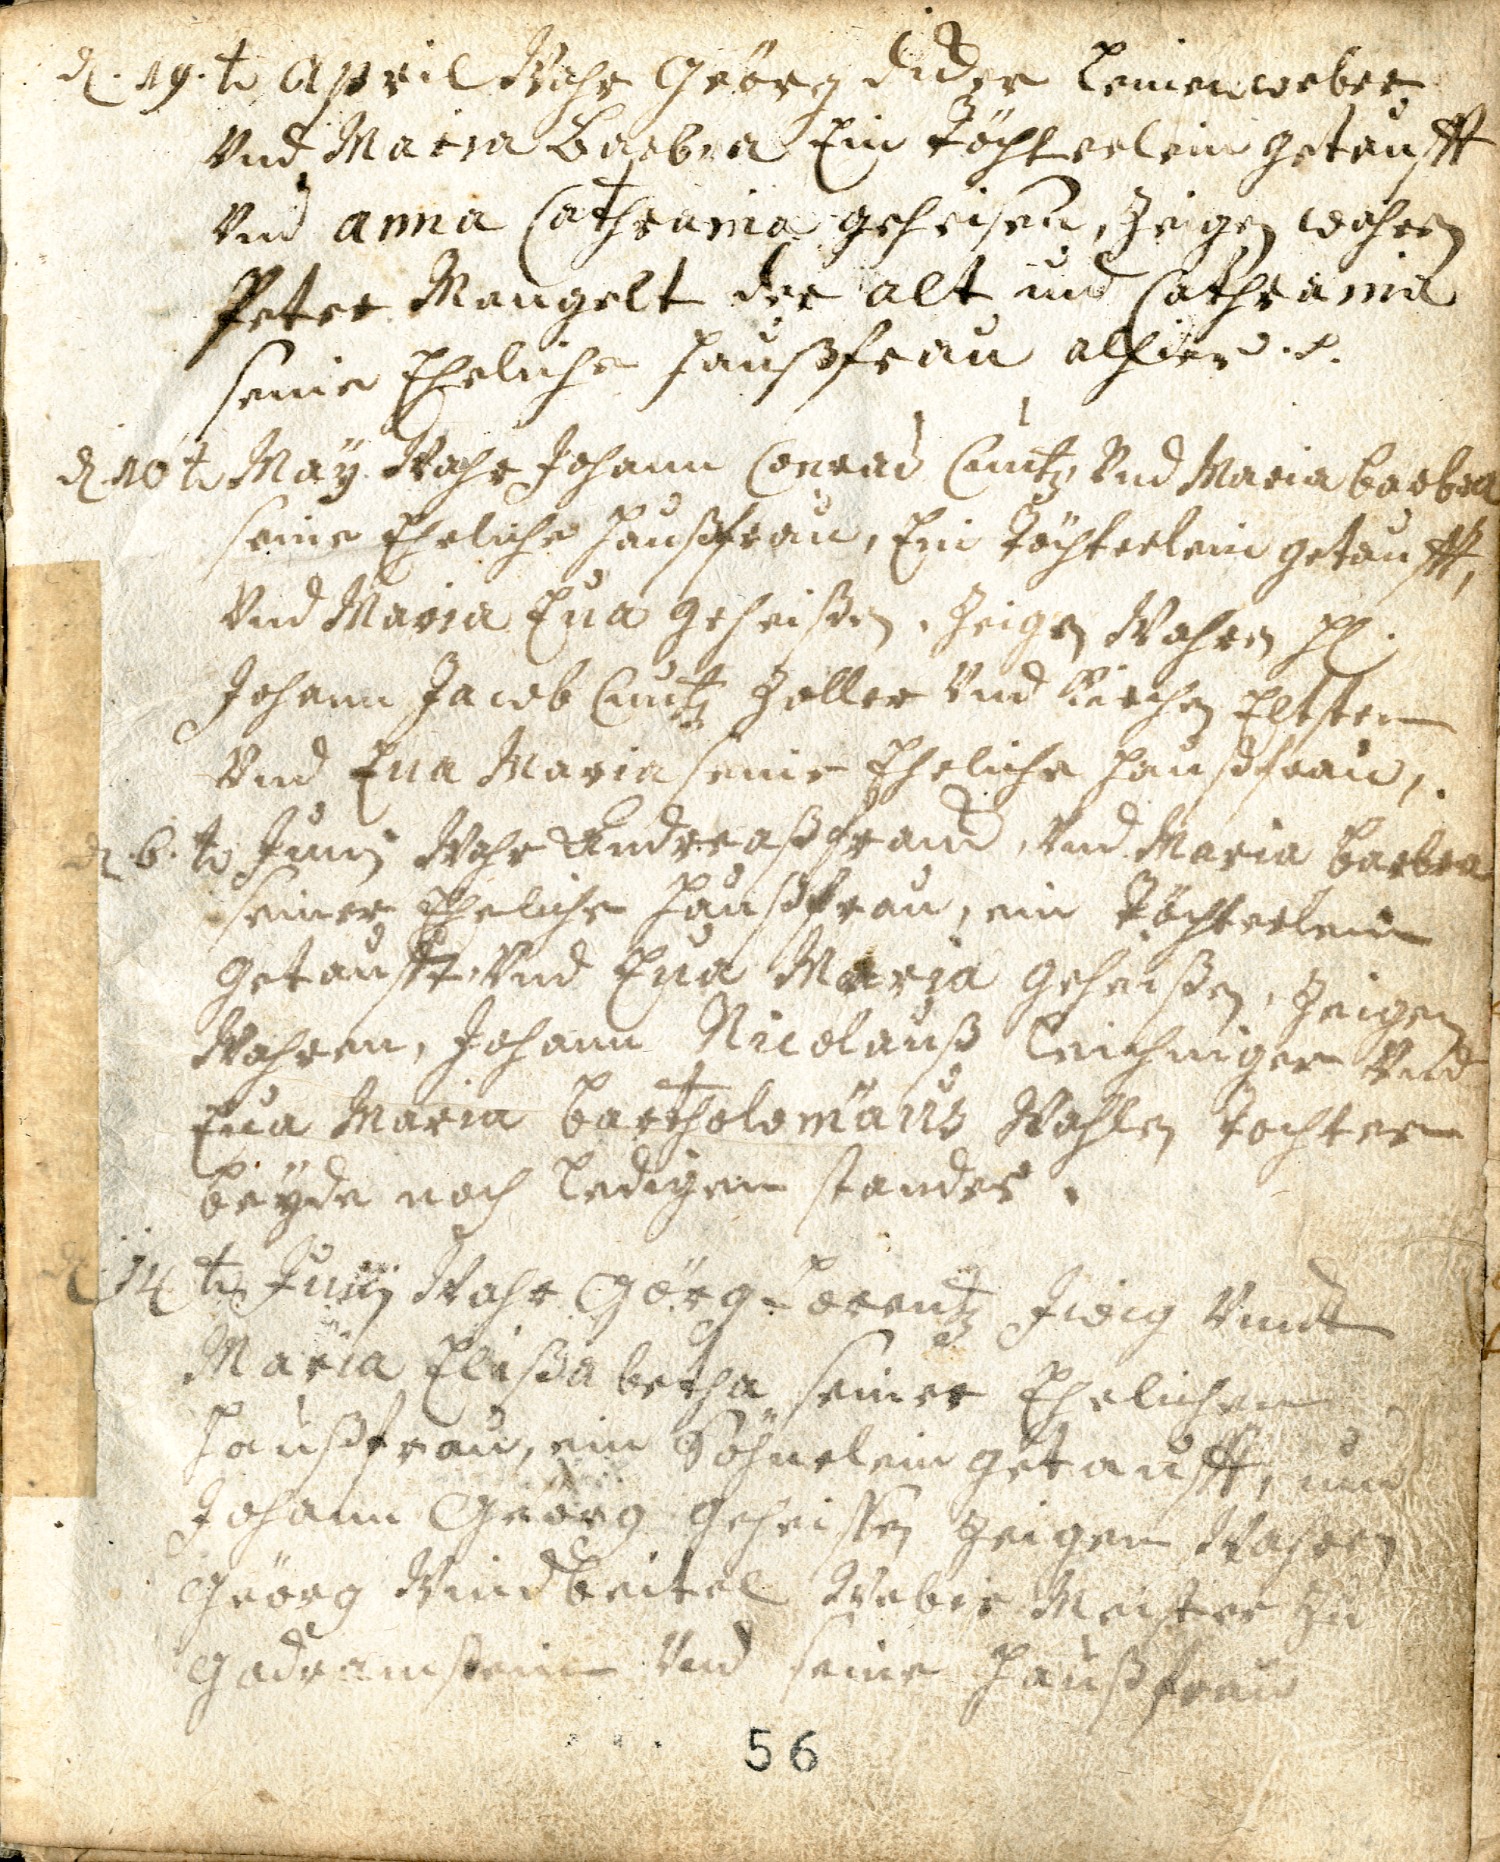 d. 19. t. April Wahr Geörg dider Leinenweber
Vnd Maria Barbra Ein Töchterlein getaufft
Vnd anna Cathrania geheisen, Zeigen wahren
Peter Mangelt der alt und Cathrania
seine Eheliche Haußfrau alhier
d 10 t. Maÿ Wahr Johann Conrad Cuntz Vnd Maria barbra
seine Eheliche Haußfrau, Ein Töchterlein getaufft,
Vnd Maria Eua geheißen, Zeigen Wahren H.
Johann Jacob Cuntz Zoller Vnd Kirchen Eltster
Vnd Eua Maria seine Eheliche Haußfrau,.
d. 6. t. Junij Wahr Andreaß frand, Vnd Maria barbra
seiner Eheliche Haußfrau, ein Töchterlein
getaufft, Vnd Eua Maria geheißen, Zeigen
Wahren, Johann Nicolauß Leichniger Vnd
Eua Maria bartholomäus Wahlen tochter
beÿde noch Ledigen standes.
d 14 t. Junij Wahr Görg Lorentz Vnndt
Maria Elisabetha seiner Ehelichen
Haußfrau, ein Söhnelein getaufft, und
Johann Geörg geheissen Zeigen Wahren
Geörg Windbeitel Weber Meister zu
Godramstein Vnd seine Haußfrau
56